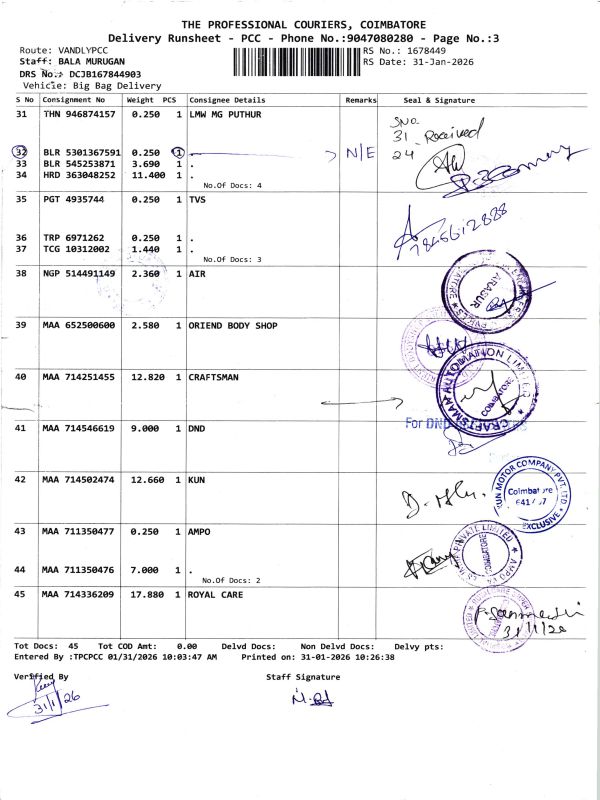 THE PROFESSIONAL COURIERS, COIMBATORE
Delivery Runsheet - PCC - Phone No.:9047080280 - Page No.:3
Route: VANDLYPCC RS No.: 1678449
Staff: BALA MURUGAN RS Date: 31-Jan-2026
DRS No.: DCJB167844903
Vehicle: Big Bag Delivery
S No Consignment No Weight PCS Consignee Details Remarks Seal & Signature
31 THN 946874157 0.250 1 LMW MG PUTHUR
SNO.
31 Received
24
32 BLR 5301367591 0.250 1 . N/E
33 BLR 545253871 3.690 1 .
34 HRD 363048252 11.400 1 .
No.Of Docs: 4
35 PGT 4935744 0.250 1 TVS
7845612888
36 TRP 6971262 0.250 1 .
37 TCG 10312002 1.440 1 .
No.Of Docs: 3
38 NGP 514491149 2.360 1 AIR
ARASUR
39 MAA 652500600 2.580 1 ORIEND BODY SHOP
40 MAA 714251455 12.820 1 CRAFTSMAN
CRAFTSMAN AUTOMATION LIMITED
COIMBATORE
41 MAA 714546619 9.000 1 DND
For DND
42 MAA 714502474 12.660 1 KUN
KUN MOTOR COMPANY PVT. LTD
Coimbatore
EXCLUSIVE
43 MAA 711350477 0.250 1 AMPO
PRIVATE LIMITED
COIMBATORE
44 MAA 711350476 7.000 1 .
No.Of Docs: 2
45 MAA 714336209 17.880 1 ROYAL CARE
31/1/26
Tot Docs: 45 Tot COD Amt: 0.00 Delvd Docs: Non Delvd Docs: Delvy pts:
Entered By :TPCPCC 01/31/2026 10:03:47 AM Printed on: 31-01-2026 10:26:38
Verified By Staff Signature
31/1/26